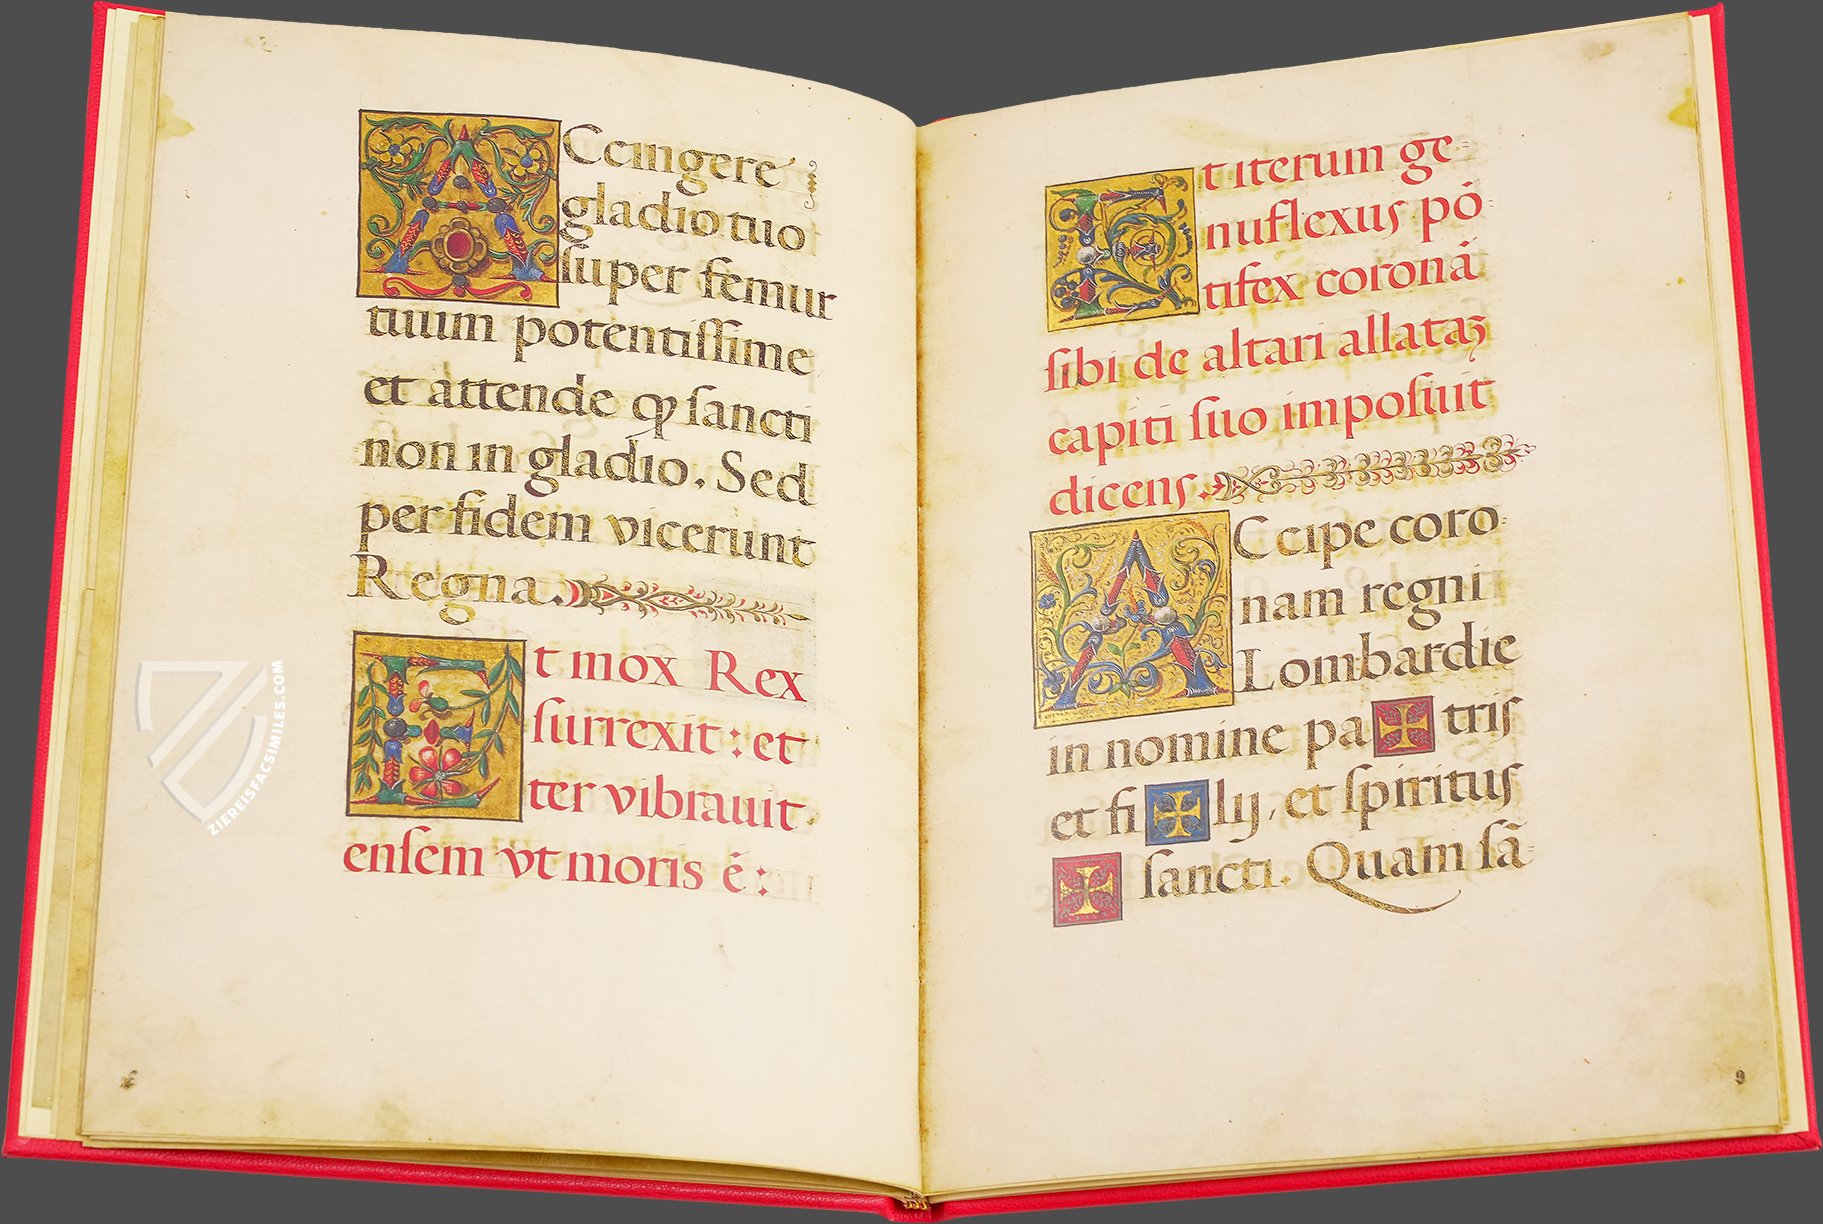 ACcingere
gladio tuo
ſuper femur
tuum potentiſſime
et attende qƺ ſancti
non in gladio. Sed
per fidem vicerunt
Regna.
Et mox Rex
ſurrexit: et
ter vibrauit
enſem vt moris ē:
Et iterum ge-
nuflexus pō-
tifex coronā
ſibi de altari allataꝫ
capiti ſuo impoſuit
dicens.
ACcipe coro-
nam regni
Lombardie
in nomine pa✠tris
et fi✠lij, et ſpiritus
✠ ſancti. Quam ſā-
9
ZIEREISFACSIMILES.COM